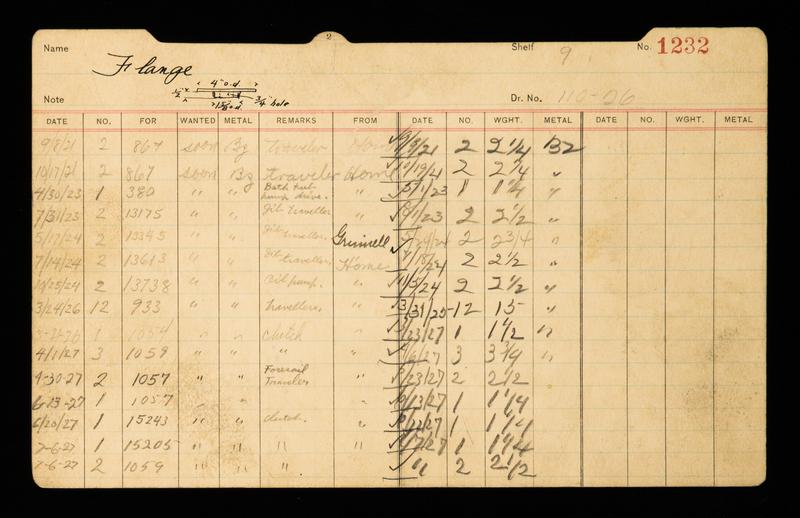 2
Name Flange Shelf 9 No. 1232
4" o.d.
1/2" 3/4 hole
Note 1 5/8 o.d. Dr. No. 110-26
DATE NO. FOR WANTED METAL REMARKS FROM DATE NO. WGHT. METAL DATE NO. WGHT. METAL
9/8/21 2 867 soon Bz Traveler Home 9/9/21 2 2 1/4 Bz
10/17/21 2 867 soon Bz traveler Home 10/19/21 2 2 1/4 "
4/30/23 1 380 " " Bath tub pump drive. " 5/1/23 1 1 1/4 "
7/31/23 2 13175 " " Jib traveller " 2 2 1/2 "
5/17/24 2 13345 " " Jib traveller. Grinnell 5/29/24 2 2 3/4 "
7/14/24 2 13613 " " Jib traveller. Home 7/18/24 2 2 1/2 "
10/25/24 2 13738 " " Oil pump. " 11/5/24 2 2 1/2 "
3/24/26 12 933 " " Travellers. " 3/31/25 12 15 "
1 1054 " " clutch " 3/23/27 1 1 1/2 "
4/1/27 3 1059 " " " " 4/6/27 3 3 3/4 "
4-30-27 2 1057 " " Foresail Traveler " 5/23/27 2 2 1/2
6-13-27 1 1057 " " " 6/13/27 1 1 1/4
6/20/27 1 15243 " " clutch. " 6/22/27 1 1 1/4
7-6-27 1 15205 " " " " 7/27 1 1 1/4
7-6-27 2 1059 " " " " 2 2 1/2